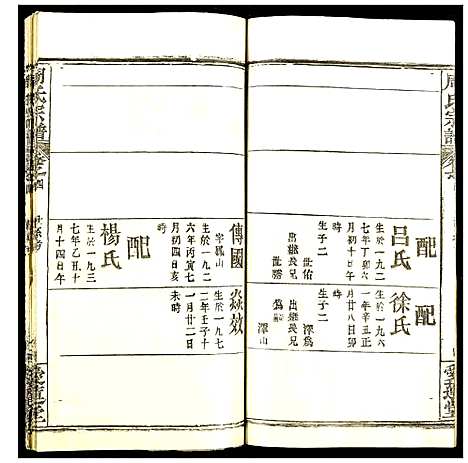 周氏宗譜
愛蓮堂
配
呂氏
生於一九二
七年丁卯六
月初十日午
時
生子二
世佑
出繼長兄
世勝
配
徐氏
生於一九六
一年辛丑正
月廿八日卯
時
生子二
澤為
出繼長兄
為嗣
澤山
傳國
字鳳山
生於一九二
六年丙寅七
月初四日亥
時
焱效
生於一九七
二年壬子十
一月廿二日
未時
配
楊氏
生於一九三
七年乙丑十
月十四日午
周氏宗譜
卷之四
愛蓮堂